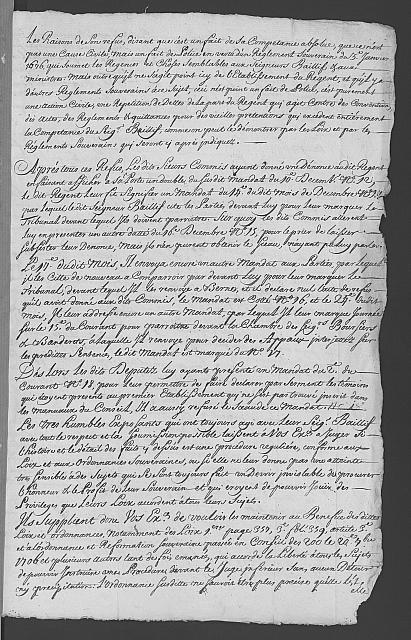 Les Raisons de Son refus, disant que c'est un fait de Sa Competance absolue, que ce n'est
pas une Cause Civile, mais un fait de Police en vertu d'un Reglement Souverain du 5.e Janvier
1676 qui Soumet les Regences et Choses Semblables aux Seigneurs Baillif
ministres. Mais outre qu'il ne s'agit point icy de l'Etablissement du Regent, et qu'il y a
d'autres Reglements Souverains à ce Sujet, icy n'est point un fait de Police, c'est purement
une action Civile, une Repetition de Dettes de la part du Regent qui agit Contre des Conventions
des actes, des Reglements & quittances pour des vieilles pretentions qui excedent entierement
la Competance du Seig.r Baillif, comme on peut le démontrer par les Loix et par les
Reglements Souverains qui Seront cy après indiqués.
Après tous ces Refus, Les dits Sieurs Commis ayant donné un Denonce au dit Regent
en faisant afficher à Sa Porte un double du Susdit Mandat du 10.e Decemb.r N.o 12,
le dit Regent Leur fit Signifier un Mandat du 15.e du dit mois de Decembre
par lequel le dit Seigneur Baillif cite les Parties devant luy pour leur marquer le
Tribunal devant lequel Ils doivent paroitre. Sur quoy les dits Commis allerent
luy en presenter un autre daté du 16.e Decembre N.o 15, pour le prier de laisser
Subsister leur Denonce, mais ils n'en purent obtenir le Sceau, n'ayant pu luy parler.
Le 17.e du dit Mois Il envoya encore un autre Mandat aux Parties par lequel
il les Cite de nouveau à Comparoir par devant luy pour leur marquer le
Tribunal, devant lequel Il les renvoye à Berne, et il declare nul le
qu'il avoit donné aux dits Commis, le Mandat est Coté N.o 16, et le 24.e du dit
mois, Il leur adresse encore un autre Mandat, par lequel Il leur marque Journée
Sur le 15.e du Courant pour paroitre devant la Chambre des Seig.rs Boursiers
& Banderets, à laquelle Il renvoye pour decider des Appaux interjettés sur
les predittes Sentences, le dit Mandat est marqué du N.o 17.
Dès lors les dits Deputés luy ayants presenté un Mandat du
Courant N.o 18, pour leur permettre de faire declarer par Serment les temoins
qui étoyent presents au premier Etablissement qui ne s'est pas trouvé inscrit dans
les manuaux du Conseil, Il a aussy refusé le Sceau de ce Mandat.
Les tres humbles Exposants qui ont toujours agi avec leur Seig.r Baillif
avec tout le respect et la Soumission possible laissent à Vos Ex.ces à Juger Si
l'histoire et le detail des faits cy dessus est une procedure reguliere, conforme aux
Loix, et aux Ordonnances Souveraines, ou Si elle ne leur donne pas une atteinte
tres Sensible à des Sujets qui Se Sont toujours fait un devoir inviolable de procurer
l'honneur & le Profit de leur Souverain et qui croyent de pouvoir Jouir des
Privileges que Leurs Loix accordent à tous leurs Sujets.
Ils Supplient donc Vos Ex.ces de vouloir les maintenir au Benefice des dittes
Loix et ordonnances, Notamment des Loix page 357, 3.e
et à l'ordonnance et Reformation Souveraine passée en Conseil des 200 le 24.e
1706 et plusieurs autres tant de fois émanés, qui accorde la Liberté à tous les Sujets
de pouvoir Instruire une Procedure devant le Juge inferieur Sans aucun Détour
ny precipitation. L'ordonnance Susditte ne Sauroit être plus precise quelle l'est,
elle